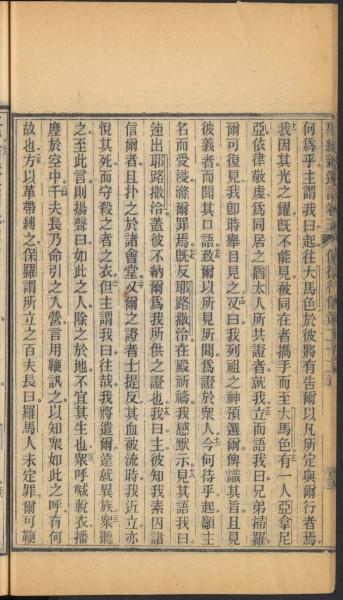 何爲乎主謂我曰起往大馬色於彼將有告爾以凡所定與爾行者焉
我因其光之耀旣不能見被同在者攜手而至大馬色有一人亞拿尼
亞依律敬虔爲同居之猶太人所共證者就我立而語我曰兄弟掃羅
爾可復見我卽時舉目見之又曰我列祖之神預選爾俾識其旨且見
彼義者而聞其口語蓋爾以所見所聞爲證於衆人今何待乎起籲主
名而受浸滌爾罪焉旣反耶路撒冷在殿祈禱我感默示見其語我曰
速出耶路撒冷蓋彼不納爾爲我所供之證也我曰主彼知我素囚諸
信爾者且扑之於諸會堂又爾之證者士提反其血被流時我近立亦
悅其死而守殺之者之衣但主謂我曰往哉我將遣爾遠就異族衆聽
之至此言則揚聲曰如此之人除之於地不宜其生也衆呼喊脫衣播
塵於空中千夫長乃命引之入營言用鞭訊之以知衆如此之呼有何
故也方以革帶縛之保羅謂所立之百夫長曰羅馬人未定罪爾可鞭